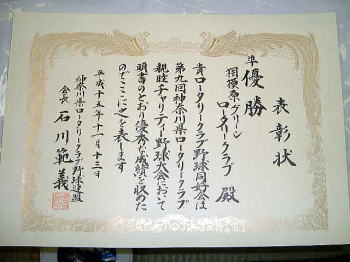 表彰状
準優勝
相模原グリーン
ロータリークラブ殿
貴ロータリークラブ野球同好会は
第九回神奈川県ロータリークラブ
親睦チャリティー野球大会において
頭書のとおり優秀な成績を収めた
のでここに之を表します
平成十五年十一月十三日
神奈川県ロータリークラブ野球連盟
会長 石川範義